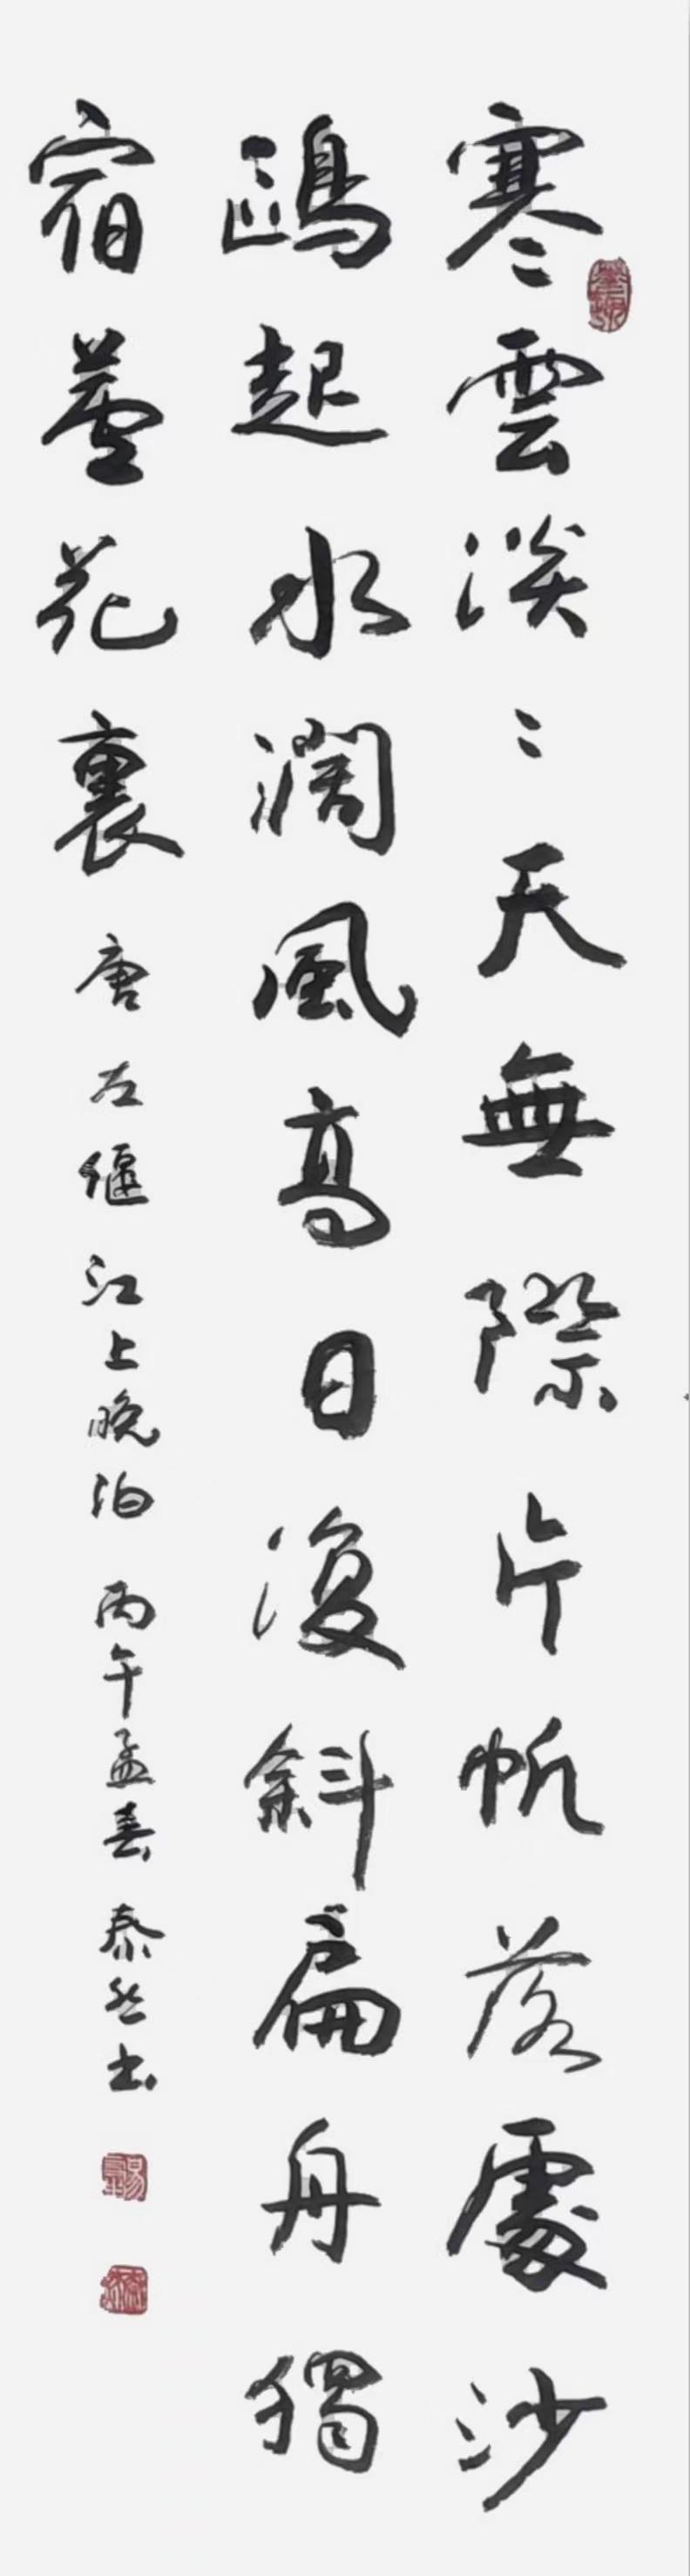 寒雲淡〻天無際片帆落處沙
鷗起水濶風高日復斜扁舟獨
宿蘆花裏 唐左偃江上晚泊 丙午孟春 泰然书